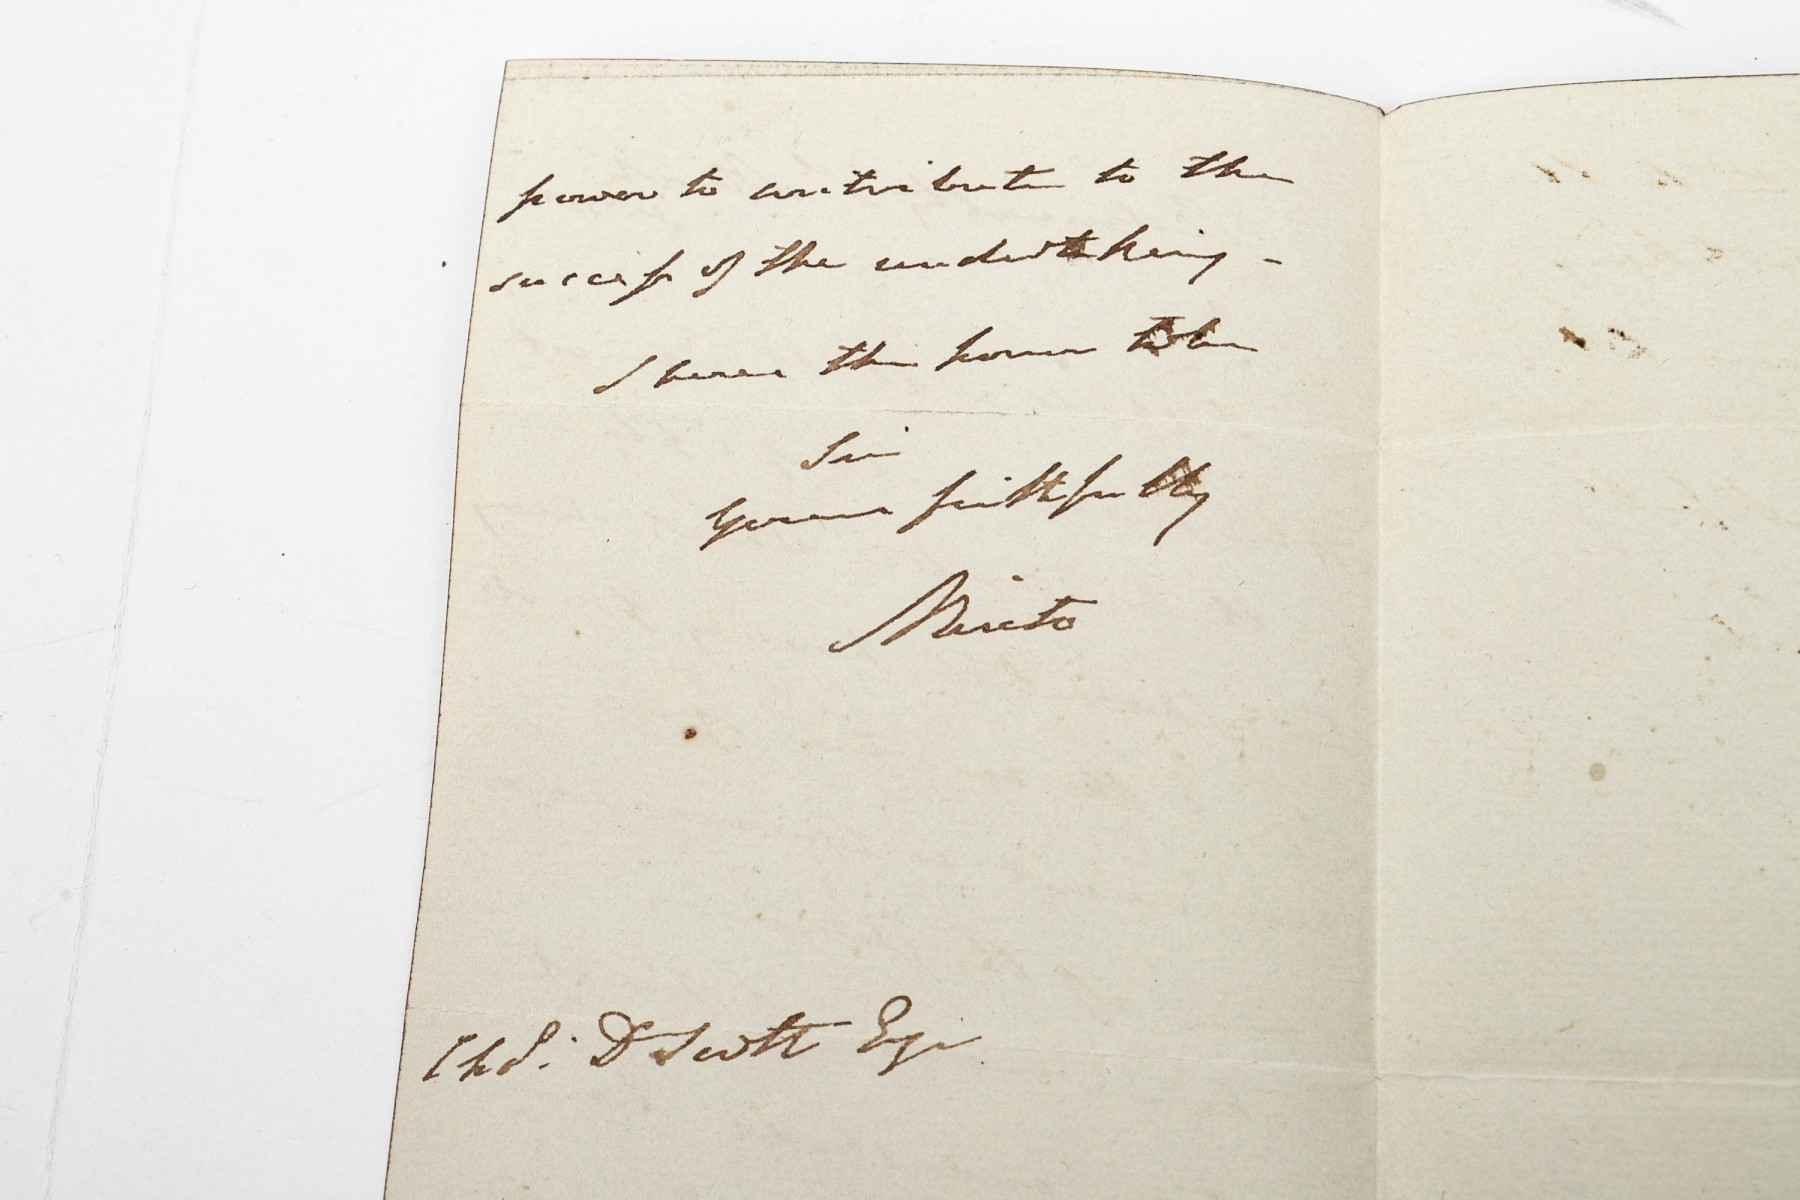 power to contribute to the
success of the undertaking -
I have the honor to be
Sir
Yours faithfully
Minto
Thos. D Scott Esqr